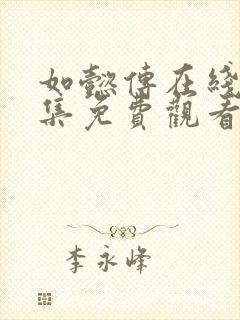 如懿傳在綫
集免費觀看
李永峰